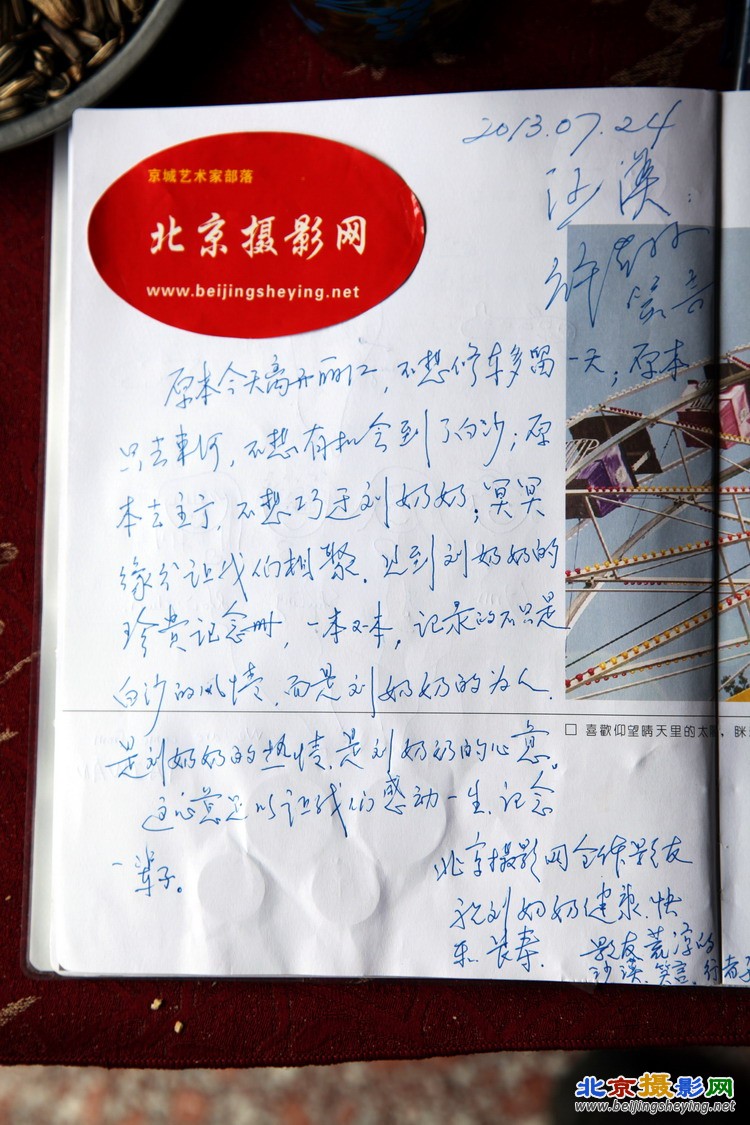 京城艺术家部落
北京摄影网
www.beijingsheying.net
2013.07.24
沙漠
笑言
原本今天离开丽江,不想修车多留一天;原本
只去束河,不想有机会到了白沙;原
本去玉方,不想巧遇刘奶奶;冥冥
缘分让我们相聚.见到刘奶奶的
珍贵记念册,一本又一本,记录的不只是
白沙的风情,而是刘奶奶的为人.
是刘奶奶的热情.是刘奶奶的心意。
这心意足以让我们感动一生.记念
一辈子。
北京摄影网全体影友
祝刘奶奶健康.快
乐.长寿.
影友荒淳的
沙漠.笑言.行者
□ 喜歡仰望晴天里的太陽,眯
北京摄影网
www.beijingsheying.net